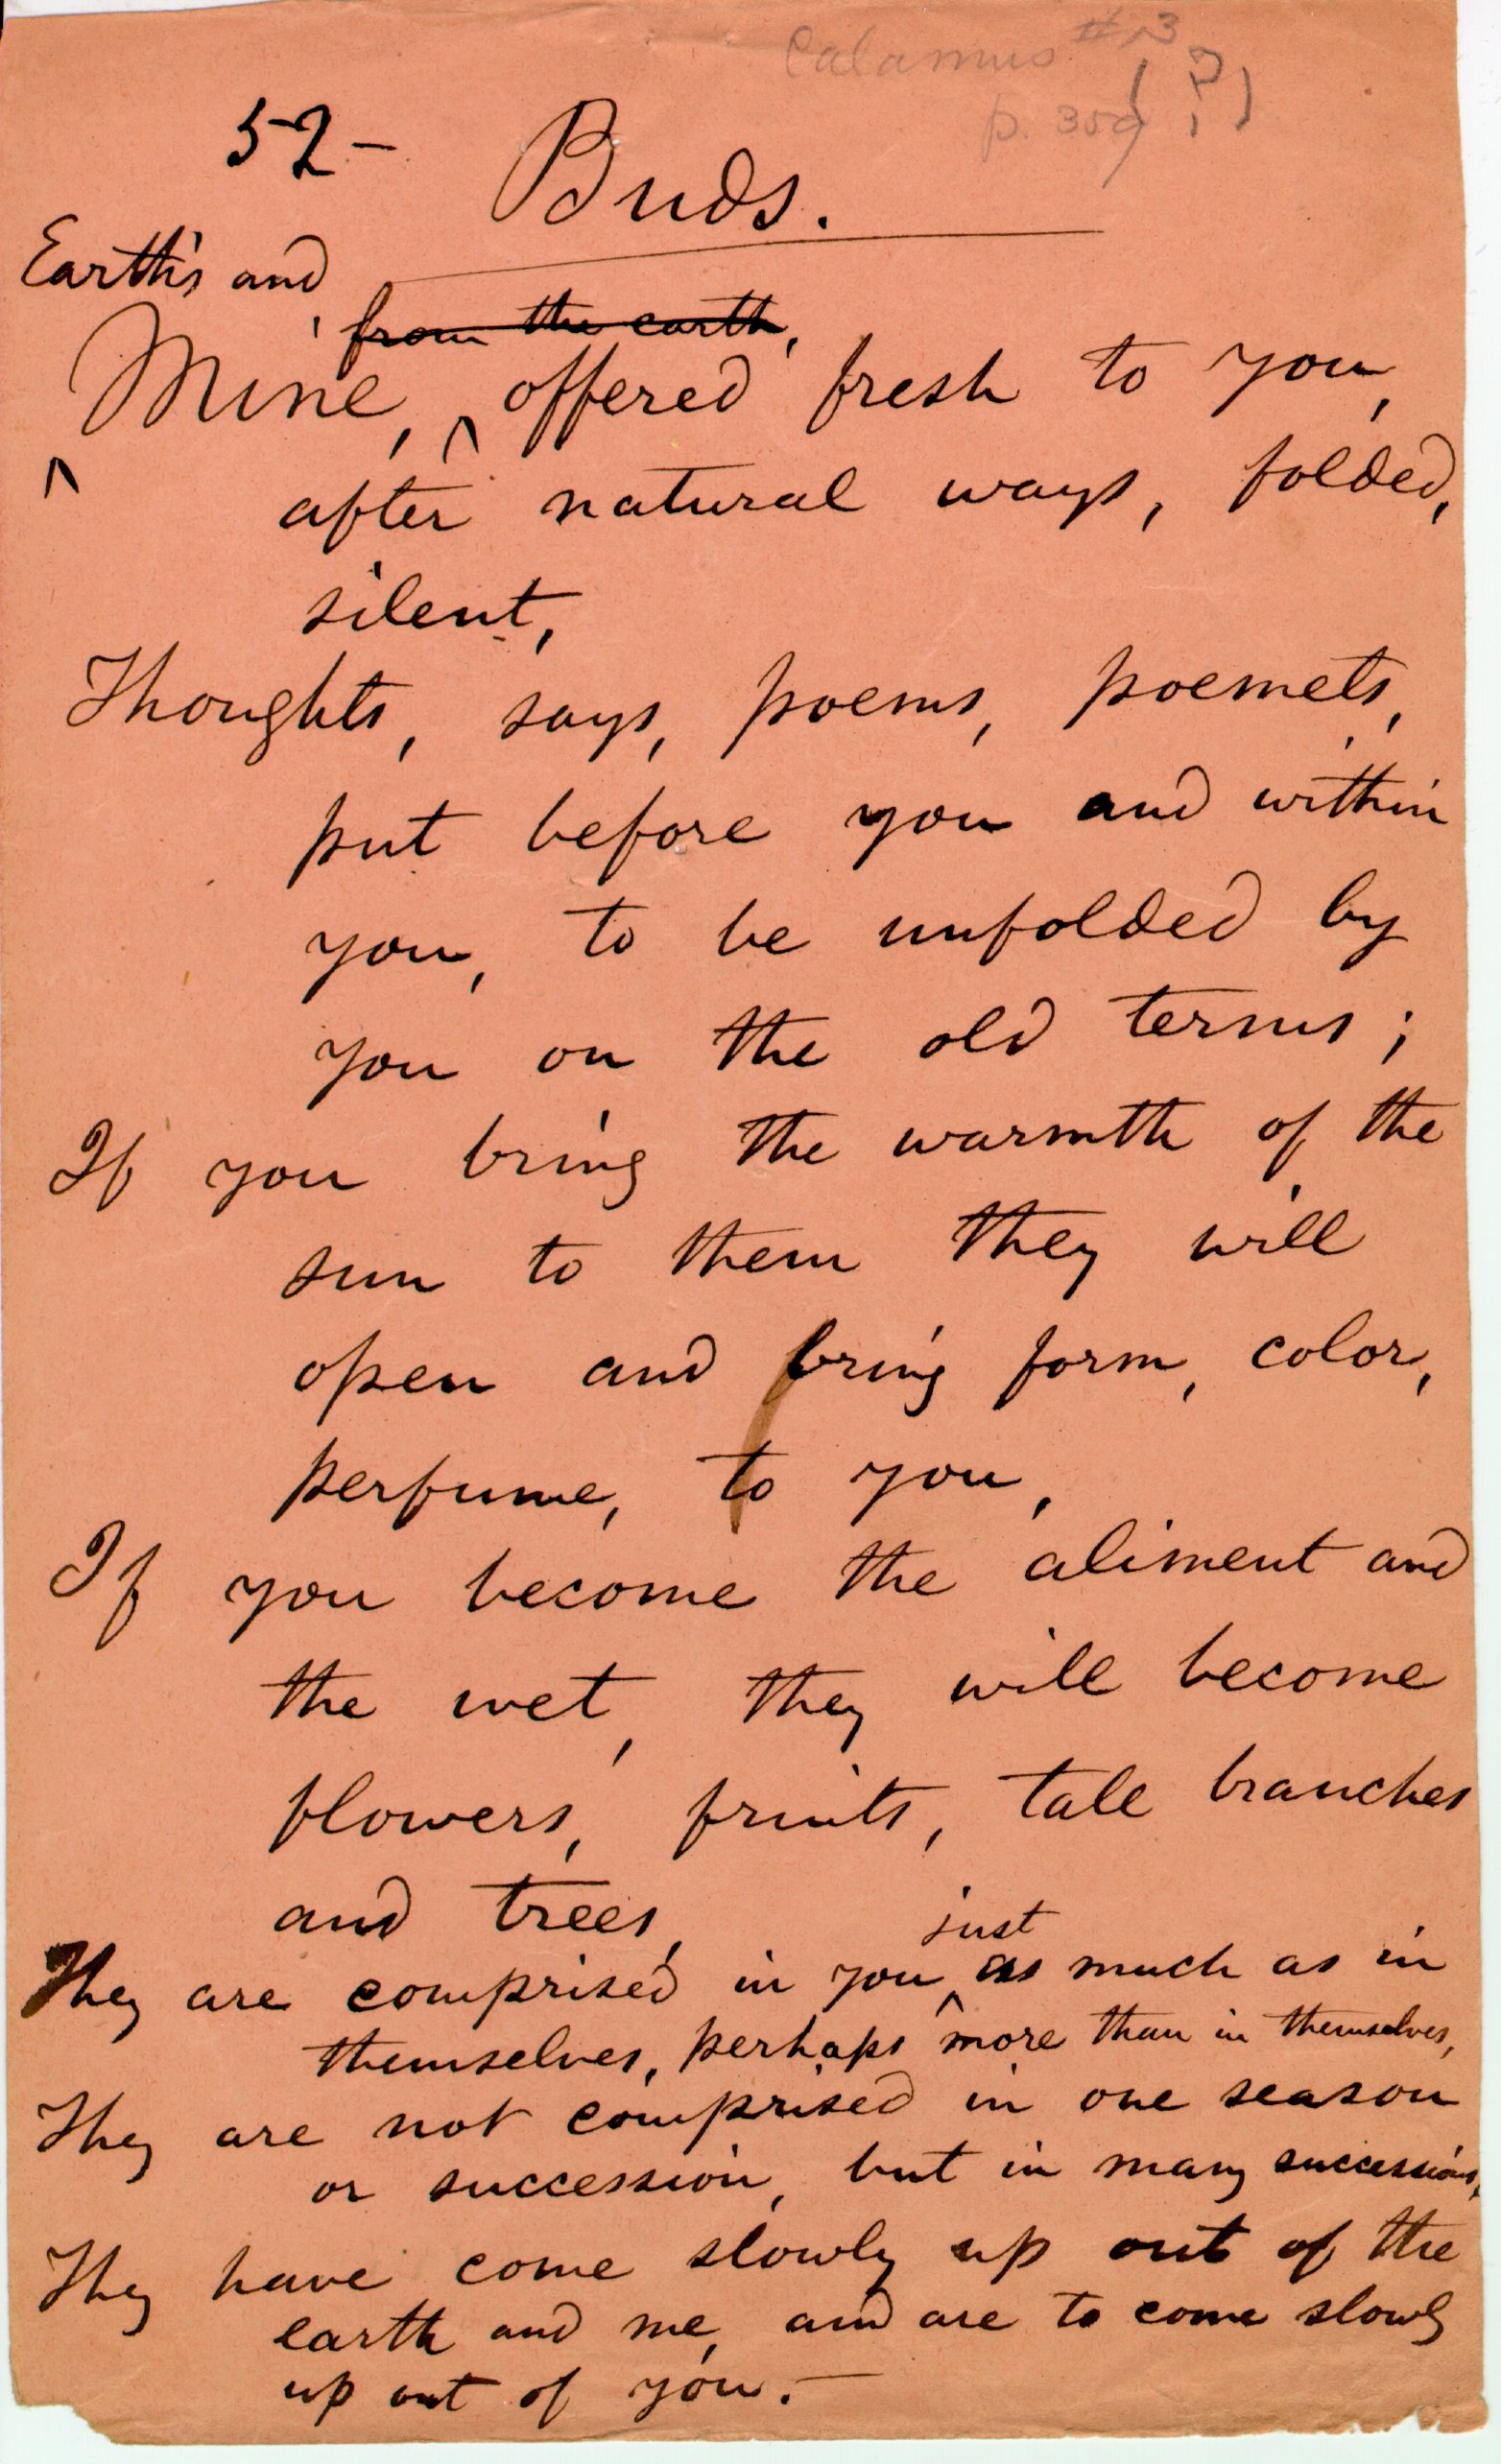 Calamus #13
p. 359 (?)
52 —
Buds.
Earth's and
from the earth,
Mine, offered fresh to you,
after natural ways, folded,
silent,
Thoughts, says, poems, poemets,
put before you and within
you, to be unfolded by
you on the old terms;
If you bring the warmth of the
sun to them they will
open and bring form, color,
perfume, to you,
If you become the aliment and
the wet, they will become
flowers, fruits, tall branches
and trees,
just
They are comprised in you as much as in
themselves, perhaps more than in themselves,
They are not comprised in one season
or succession, but in many successions,
They have come slowly up out of the
earth and me, and are to come slowly
up out of you. —